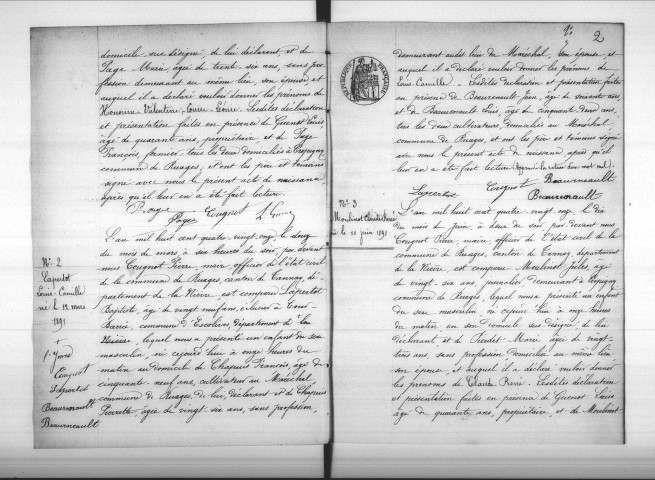 domicile sus désigné de lui déclarant et de
Page Marie, âgée de trente six ans, sans pro-
fession demeurant au même lieu, son épouse et
auquel il a déclaré vouloir donner les prénoms de
Honorine Valentine Léonie. Lesdites déclaration
et présentation faites en présence de Guenot Louis
âgé de quarante ans, propriétaire et de Page
François, fermier tous les deux domiciliés à
commune de Ruages, et ont les père et témoins
signé avec nous le présent acte de naissance,
après qu'il leur en a été fait lecture.
Page Cougnot
Page L. Guenot
N° 2
Lapertot
Louis-Camille
né le 12 mars
1891
L'an mil huit cent quatre-vingt-onze, le douze
du mois de mars, à six heures du soir, par devant
nous Cougnot Pierre, maire officier de l'état civil
de la commune de Ruages, canton de Tannay, dé-
partement de la Nièvre, est comparu Lapertot
Baptiste, âgé de vingt neuf ans,
commune d' département de la
Nièvre, lequel nous a présenté un enfant du sexe
masculin, né ce jour à onze heures du
matin au domicile de Chapuis François, âgé de
cinquante-neuf ans, cultivateur au Maréchal,
commune de Ruages, de lui, déclarant et de Chapuis
âgée de vingt-six ans, sans profession,
Cougnot
Lapertot
Beaurenault
Beaurenault
N° 2
demeurant audit lieu du Maréchal, son épouse, et
auquel il a déclaré vouloir donner les prénoms de
Louis-Camille. Lesdites déclaration et présentation faites
en présence de Beaurenault Jean, âgé de soixante ans
et de Beaurenault Louis, âgé de cinquante deux ans,
tous les deux cultivateurs, domiciliés au Maréchal
commune de Ruages, et ont les père et témoins signé
avec nous le présent acte de naissance, après qu'il
leur en a été fait lecture.
Lapertot Cougnot Beaurenault
Beaurenault
RÉPUBLIQUE FRANÇAISE
N° 3
Moulinot Claude Pierre
né le 10 juin 1891
L'an mil huit cent quatre-vingt onze, le dix
du mois de juin, à deux du soir par devant nous
Cougnot Pierre, maire, officier de l'état civil de la
commune de Ruages, canton de Tannay, département
de la Nièvre, est comparu Moulinot Jules, âgé
de vingt-six ans, journalier, demeurant à
commune de Ruages, lequel nous présenté un enfant
du sexe masculin, né ce jour à onze heures
du matin, en son domicile sus-désigné, de lui
déclarant et de Marie âgée de vingt-
trois ans, sans profession domiciliée au même lieu
son épouse, et auquel il a déclaré vouloir donner
les prénoms de Claude Pierre. Lesdites déclaration
et présentation faites en présence de Guenot Louis
âgé de quarante ans, propriétaire, et de Moulinot